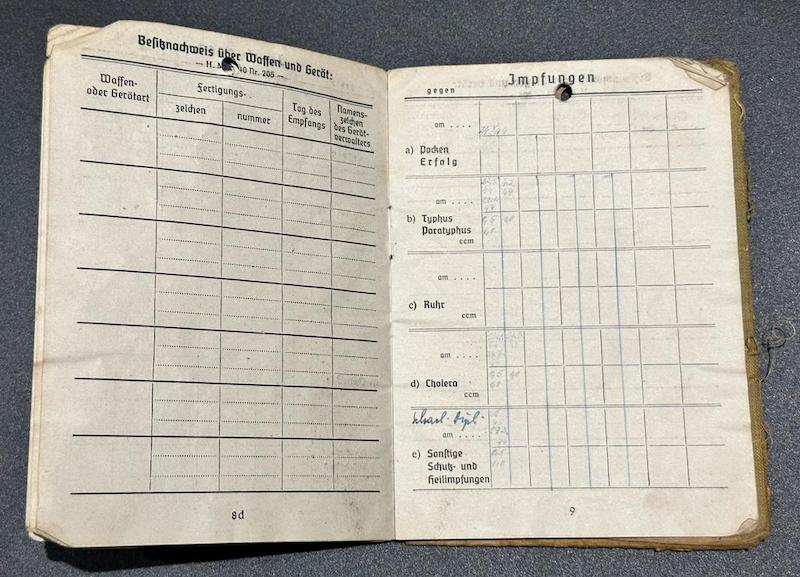 Besitznachweis über Waffen und Gerät:
40 Nr. 205 —
Waffen-
oder Geräteart
Fertigungs-
zeichen
nummer
Tag des
Empfangs
Namens-
zeichen
des Gerät-
verwalters
8d
Impfungen
gegen
am ....
a) Pocken
Erfolg
am ....
b) Typhus
Paratyphus
ccm
am ....
c) Ruhr
ccm
am ....
d) Cholera
ccm
am ....
e) Sonstige
Schutz- und
Heilimpfungen
9